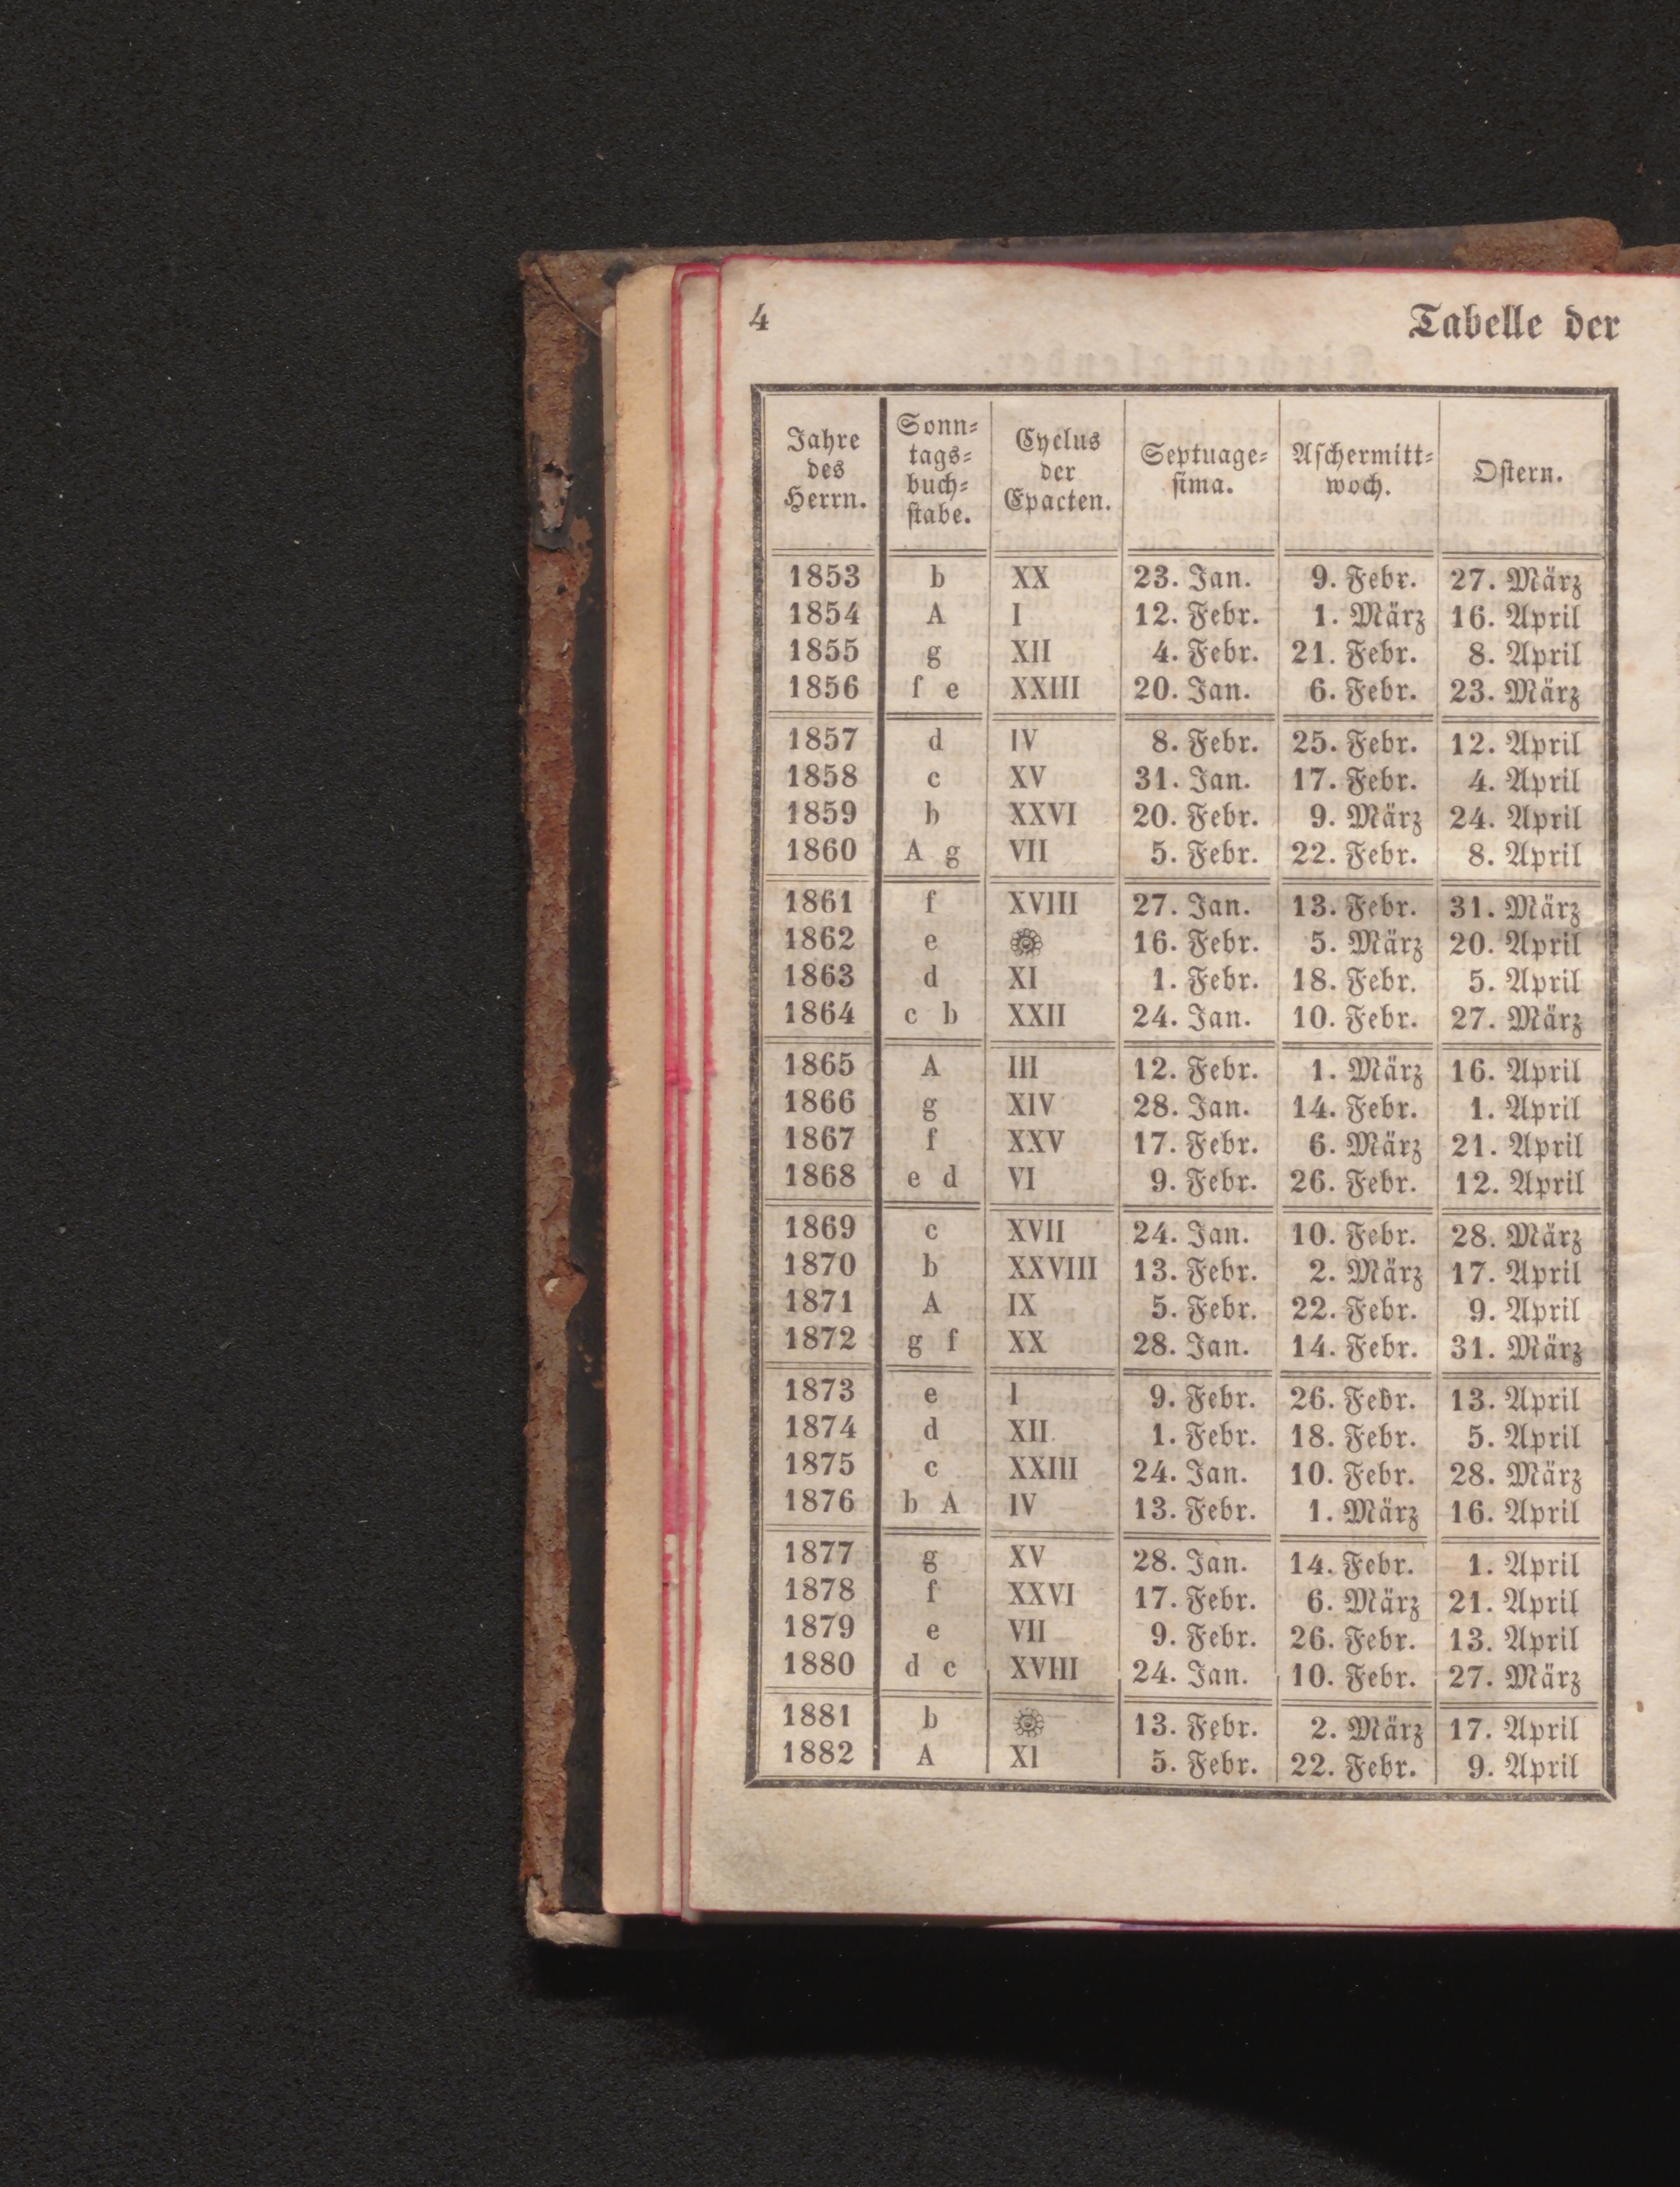 4 Tabelle der
Jahre des Herrn. Sonn= tags= buch= stabe. Cyclus der Epacten. Septuage= sima. Aschermitt= woch. Ostern.
1853 b XX 23. Jan. 9. Febr. 27. März
1854 A I 12. Febr. 1. März 16. April
1855 g XII 4. Febr. 21. Febr. 8. April
1856 f e XXIII 20. Jan. 6. Febr. 23. März
1857 d IV 8. Febr. 25. Febr. 12. April
1858 c XV 31. Jan. 17. Febr. 4. April
1859 b XXVI 20. Febr. 9. März 24. April
1860 A g VII 5. Febr. 22. Febr. 8. April
1861 f XVIII 27. Jan. 13. Febr. 31. März
1862 e 16. Febr. 5. März 20. April
1863 d XI 1. Febr. 18. Febr. 5. April
1864 c b XXII 24. Jan. 10. Febr. 27. März
1865 A III 12. Febr. 1. März 16. April
1866 g XIV 28. Jan. 14. Febr. 1. April
1867 f XXV 17. Febr. 6. März 21. April
1868 e d VI 9. Febr. 26. Febr. 12. April
1869 c XVII 24. Jan. 10. Febr. 28. März
1870 b XXVIII 13. Febr. 2. März 17. April
1871 A IX 5. Febr. 22. Febr. 9. April
1872 g f XX 28. Jan. 14. Febr. 31. März
1873 e I 9. Febr. 26. Febr. 13. April
1874 d XII 1. Febr. 18. Febr. 5. April
1875 c XXIII 24. Jan. 10. Febr. 28. März
1876 b A IV 13. Febr. 1. März 16. April
1877 g XV 28. Jan. 14. Febr. 1. April
1878 f XXVI 17. Febr. 6. März 21. April
1879 e VII 9. Febr. 26. Febr. 13. April
1880 d c XVIII 24. Jan. 10. Febr. 27. März
1881 b 13. Febr. 2. März 17. April
1882 A XI 5. Febr. 22. Febr. 9. April